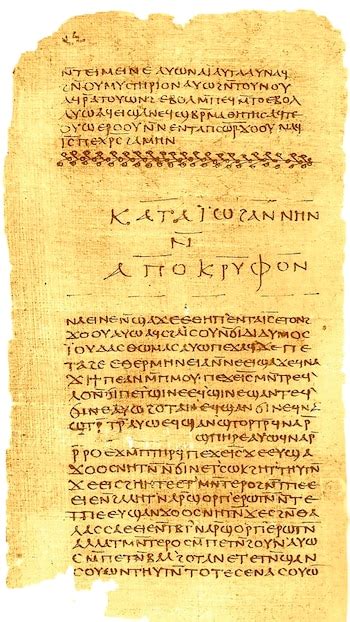 ⲛ̄ⲧⲉⲓⲙⲉⲓⲛⲉ ⲁⲩⲱ ⲛⲁⲓ ⲁⲩⲧⲁⲁⲩ ⲛⲁϥ
ϩⲛ̄ⲛⲟⲩⲙⲩⲥⲧⲏⲣⲓⲟⲛ ⲁⲩⲱ ϩⲛ̄ⲧⲟⲩⲛⲟⲩ
ⲁϥⲣ̄ⲁⲧⲟⲩⲱⲛϩ ⲉⲃⲟⲗ ⲙ̄ⲡⲉϥⲙ̄ⲧⲟ ⲉⲃⲟⲗ
ⲁⲩⲱ ⲁϥⲉⲓ ϣⲁ ⲛⲉϥϣⲃⲣ̄ⲙⲁⲑⲏⲧⲏⲥ ⲁϥϫⲉ
ⲟⲩⲱ ⲉⲣⲟⲟⲩ ⲛ̄ⲛⲉⲛⲧⲁⲡⲥⲱⲣ ϫⲟⲟⲩ ⲛⲁϥ
ⲓ̅ⲥ̅ ⲡⲉⲭ̅ⲣ̅ⲥ̅ ϩⲁⲙⲏⲛ
ⲕⲁⲧⲁ ⲓ̈ⲱϩⲁⲛⲛⲏⲛ
ⲛ̄
ⲁⲡⲟⲕⲣⲩⲫⲟⲛ
ⲛⲁⲉⲓ ⲛⲉ ⲛ̄ϣⲁϫⲉ ⲉⲑⲏⲡ ⲉⲛⲧⲁ ⲓ̅ⲥ̅ ⲉⲧⲟⲛϩ
ϫⲟⲟⲩ ⲁⲩⲱ ⲁϥⲥϩⲁⲓ̈ⲥⲟⲩ ⲛ̄ϭⲓ ⲇⲓⲇⲩⲙⲟⲥ
ⲓ̈ⲟⲩⲇⲁⲥ ⲑⲱⲙⲁⲥ ⲁⲩⲱ ⲡⲉϫⲁϥ ϫⲉ ⲡⲉ
ⲧⲁϩⲉ ⲉⲑⲉⲣⲙⲏⲛⲉⲓⲁ ⲛ̄ⲛⲉⲉⲓϣⲁϫⲉ ϥⲛⲁ
ϫⲓ ϯⲡⲉ ⲁⲛ ⲙ̄ⲡⲙⲟⲩ ⲡⲉϫⲉ ⲓ̅ⲥ̅ ⲙⲛ̄ⲧⲣⲉϥ
ⲗⲟ ⲛ̄ϭⲓ ⲡⲉⲧϣⲓⲛⲉ ⲉϥϣⲓⲛⲉ ϣⲁⲛⲧⲉϥ
ϭⲓⲛⲉ ⲁⲩⲱ ϩⲟⲧⲁⲛ ⲉϥϣⲁⲛϭⲓⲛⲉ ϥⲛⲁ
ϣⲧⲣ̄ⲧⲣ̄ ⲁⲩⲱ ⲉϥϣⲁⲛϣⲧⲟⲣⲧⲣ̄ ϥⲛⲁⲣ̄
ϣⲡⲏⲣⲉ ⲁⲩⲱ ϥⲛⲁⲣ̄
ⲣ̄ⲣⲟ ⲉϫⲙ̄ ⲡⲧⲏⲣϥ ⲡⲉϫⲉ ⲓ̅ⲥ̅ ϫⲉ ⲉⲩϣⲁ
ϫⲟⲟⲥ ⲛⲏⲧⲛ̄ ⲛ̄ϭⲓ ⲛⲉⲧⲥⲱⲕ ϩⲏⲧ ⲑⲩⲧⲛ̄
ϫⲉ ⲉⲓⲥϩⲏⲏⲧⲉ ⲉⲧⲙⲛ̄ⲧⲉⲣⲟ ϩⲛ̄ ⲧⲡⲉ ⲉ
ⲉⲓⲉ ⲛ̄ϩⲁⲗⲏⲧ ⲛⲁⲣ̄ ϣⲟⲣⲡ ⲉⲣⲱⲧⲛ̄ ⲛ̄ⲧⲉ
ⲧⲡⲉ ⲉⲩϣⲁⲛϫⲟⲟⲥ ⲛⲏⲧⲛ̄ ϫⲉ ⲥϩⲛ̄ ⲑⲁ
ⲗⲁⲥⲥⲁ ⲉⲉⲓⲉ ⲛ̄ⲧⲃⲧ ⲛⲁⲣ̄ ϣⲟⲣⲡ ⲉⲣⲱⲧⲛ̄
ⲁⲗⲗⲁ ⲧⲙⲛ̄ⲧⲉⲣⲟ ⲥⲙ̄ⲡⲉⲧⲛ̄ϩⲟⲩⲛ ⲁⲩⲱ
ⲥⲙ̄ⲡⲉⲧⲛ̄ⲃⲁⲗ ϩⲟⲧⲁⲛ ⲉⲧⲉⲧⲛ̄ϣⲁⲛ
ⲥⲟⲩⲱⲛ ⲑⲩⲧⲛ̄ ⲧⲟⲧⲉ ⲥⲉⲛⲁⲥⲟⲩⲱ